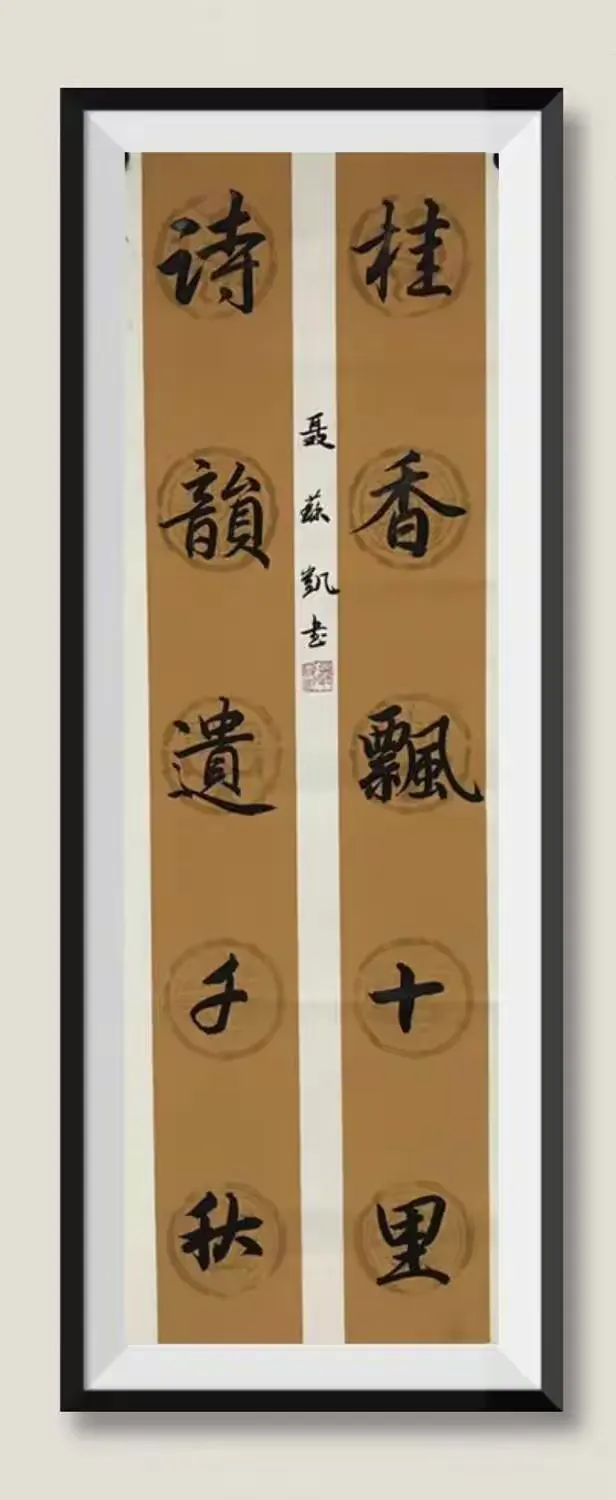 桂香飄十里
诗韻遺千秋
聂蘇凯书